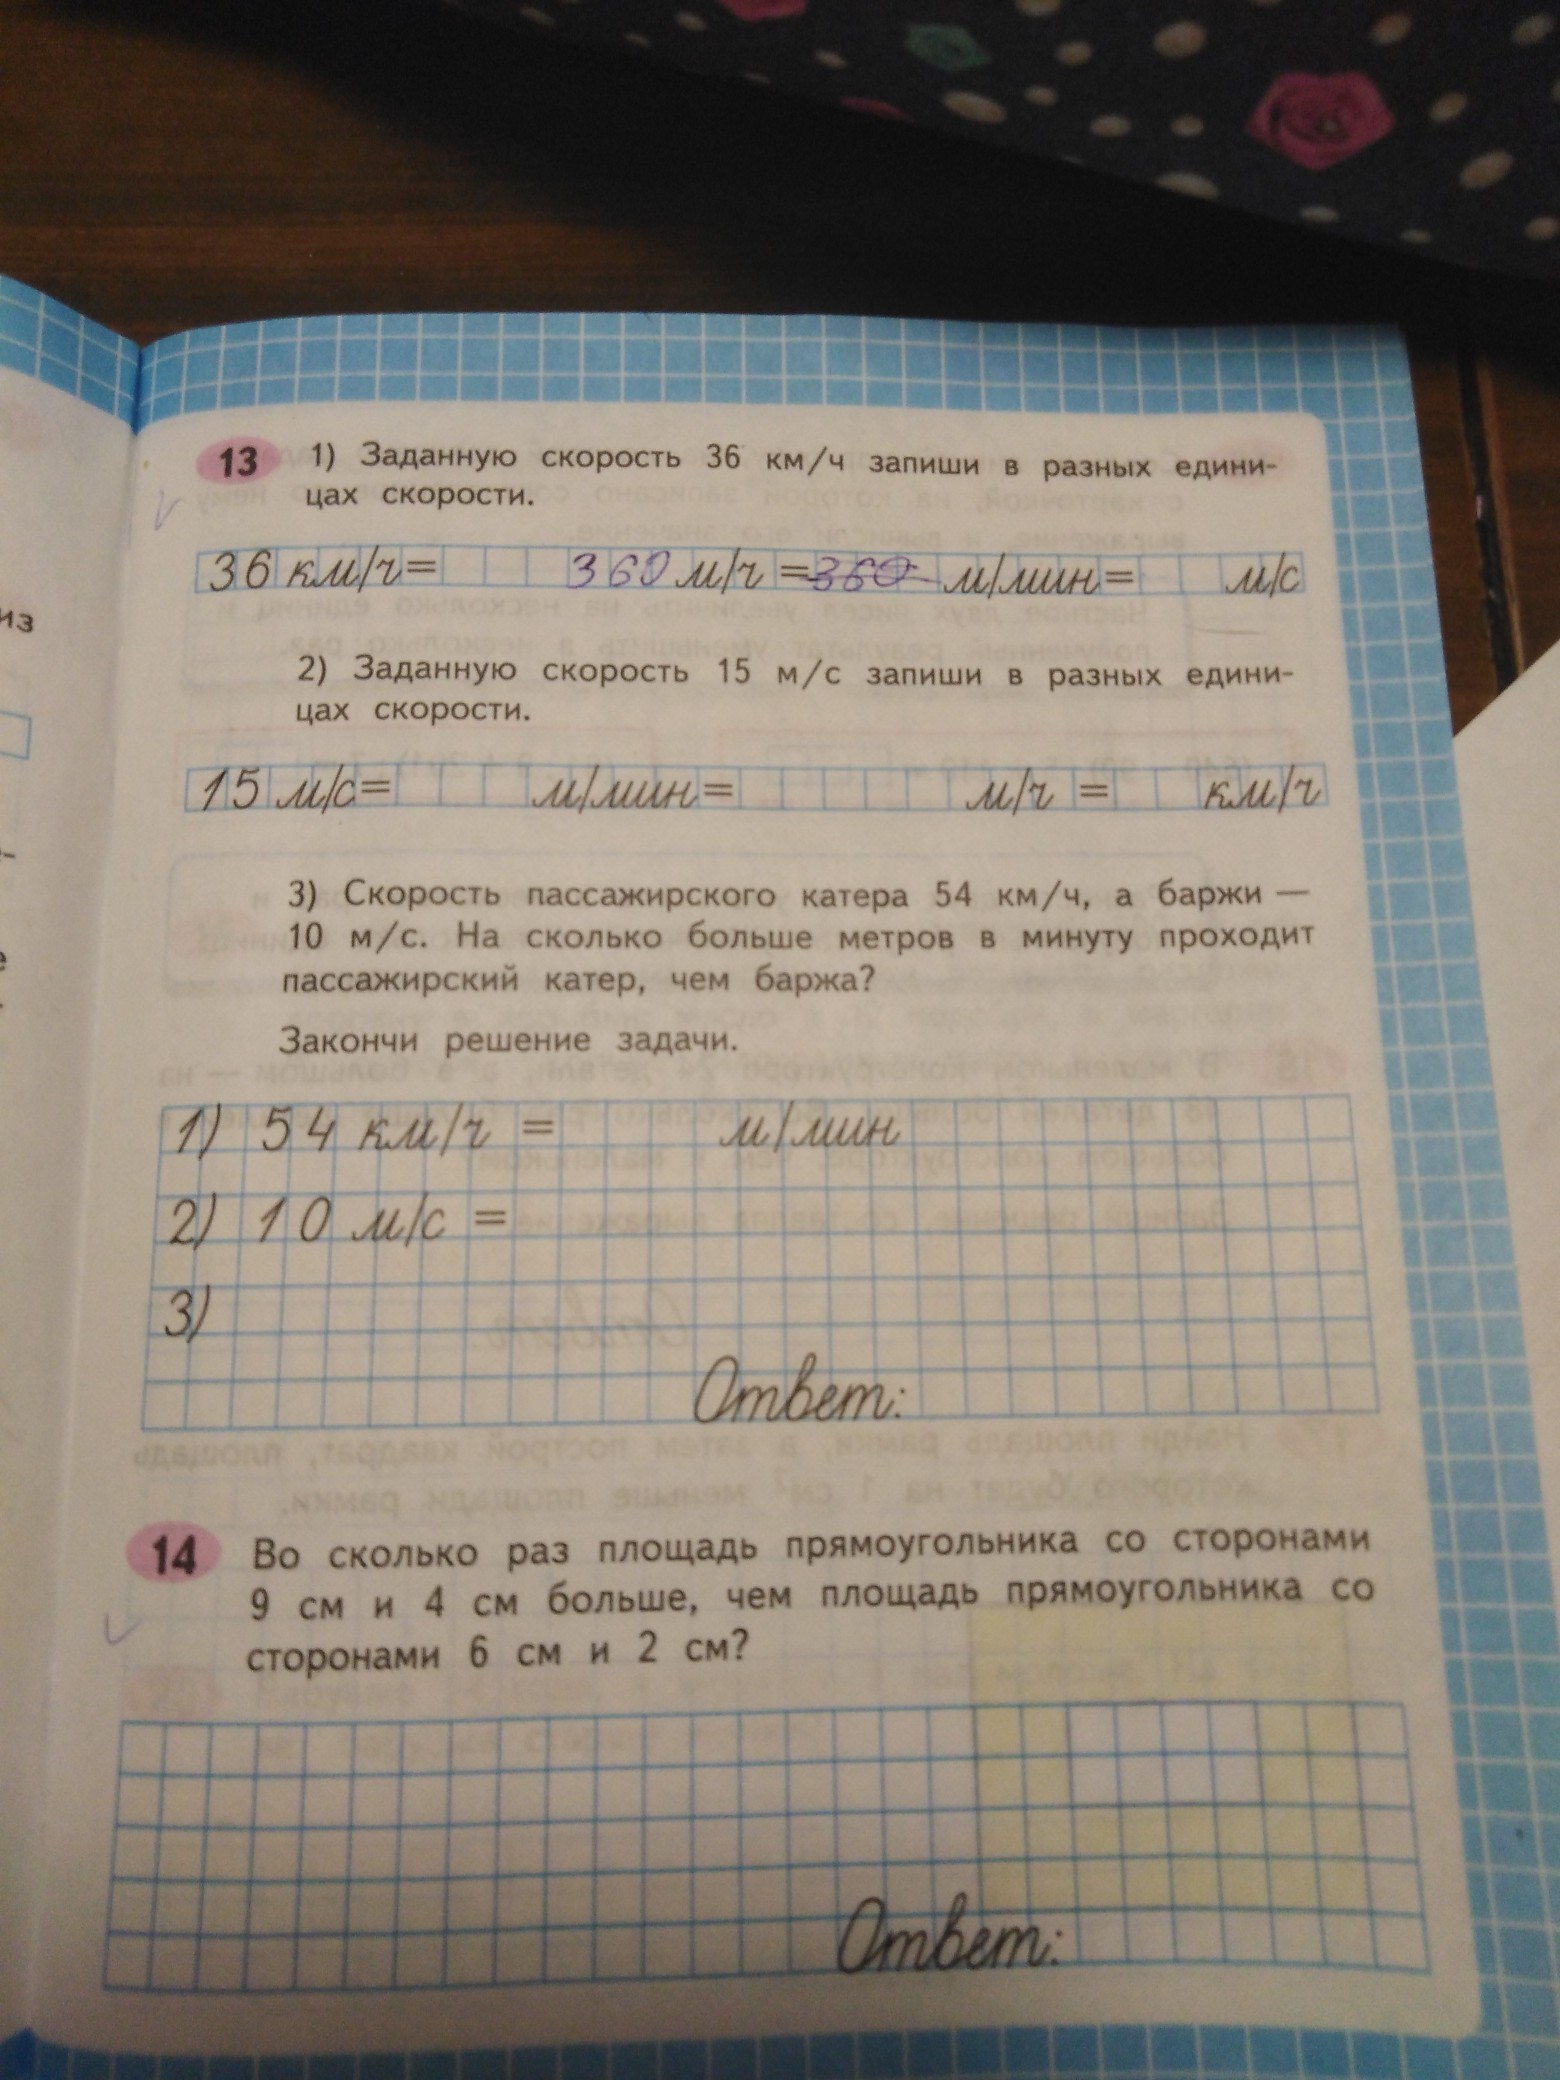 13 1) Заданную скорость 36 км/ч запиши в разных едини-
цах скорости.
36 км/ч= 360 м/ч =360 м/мин= м/с
2) Заданную скорость 15 м/с запиши в разных едини-
цах скорости.
15 м/с= м/мин= м/ч = км/ч
3) Скорость пассажирского катера 54 км/ч, а баржи —
10 м/с. На сколько больше метров в минуту проходит
пассажирский катер, чем баржа?
Закончи решение задачи.
1) 54 км/ч = м/мин
2) 10 м/с =
3)
Ответ:
14 Во сколько раз площадь прямоугольника со сторонами
9 см и 4 см больше, чем площадь прямоугольника со
сторонами 6 см и 2 см?
Ответ: